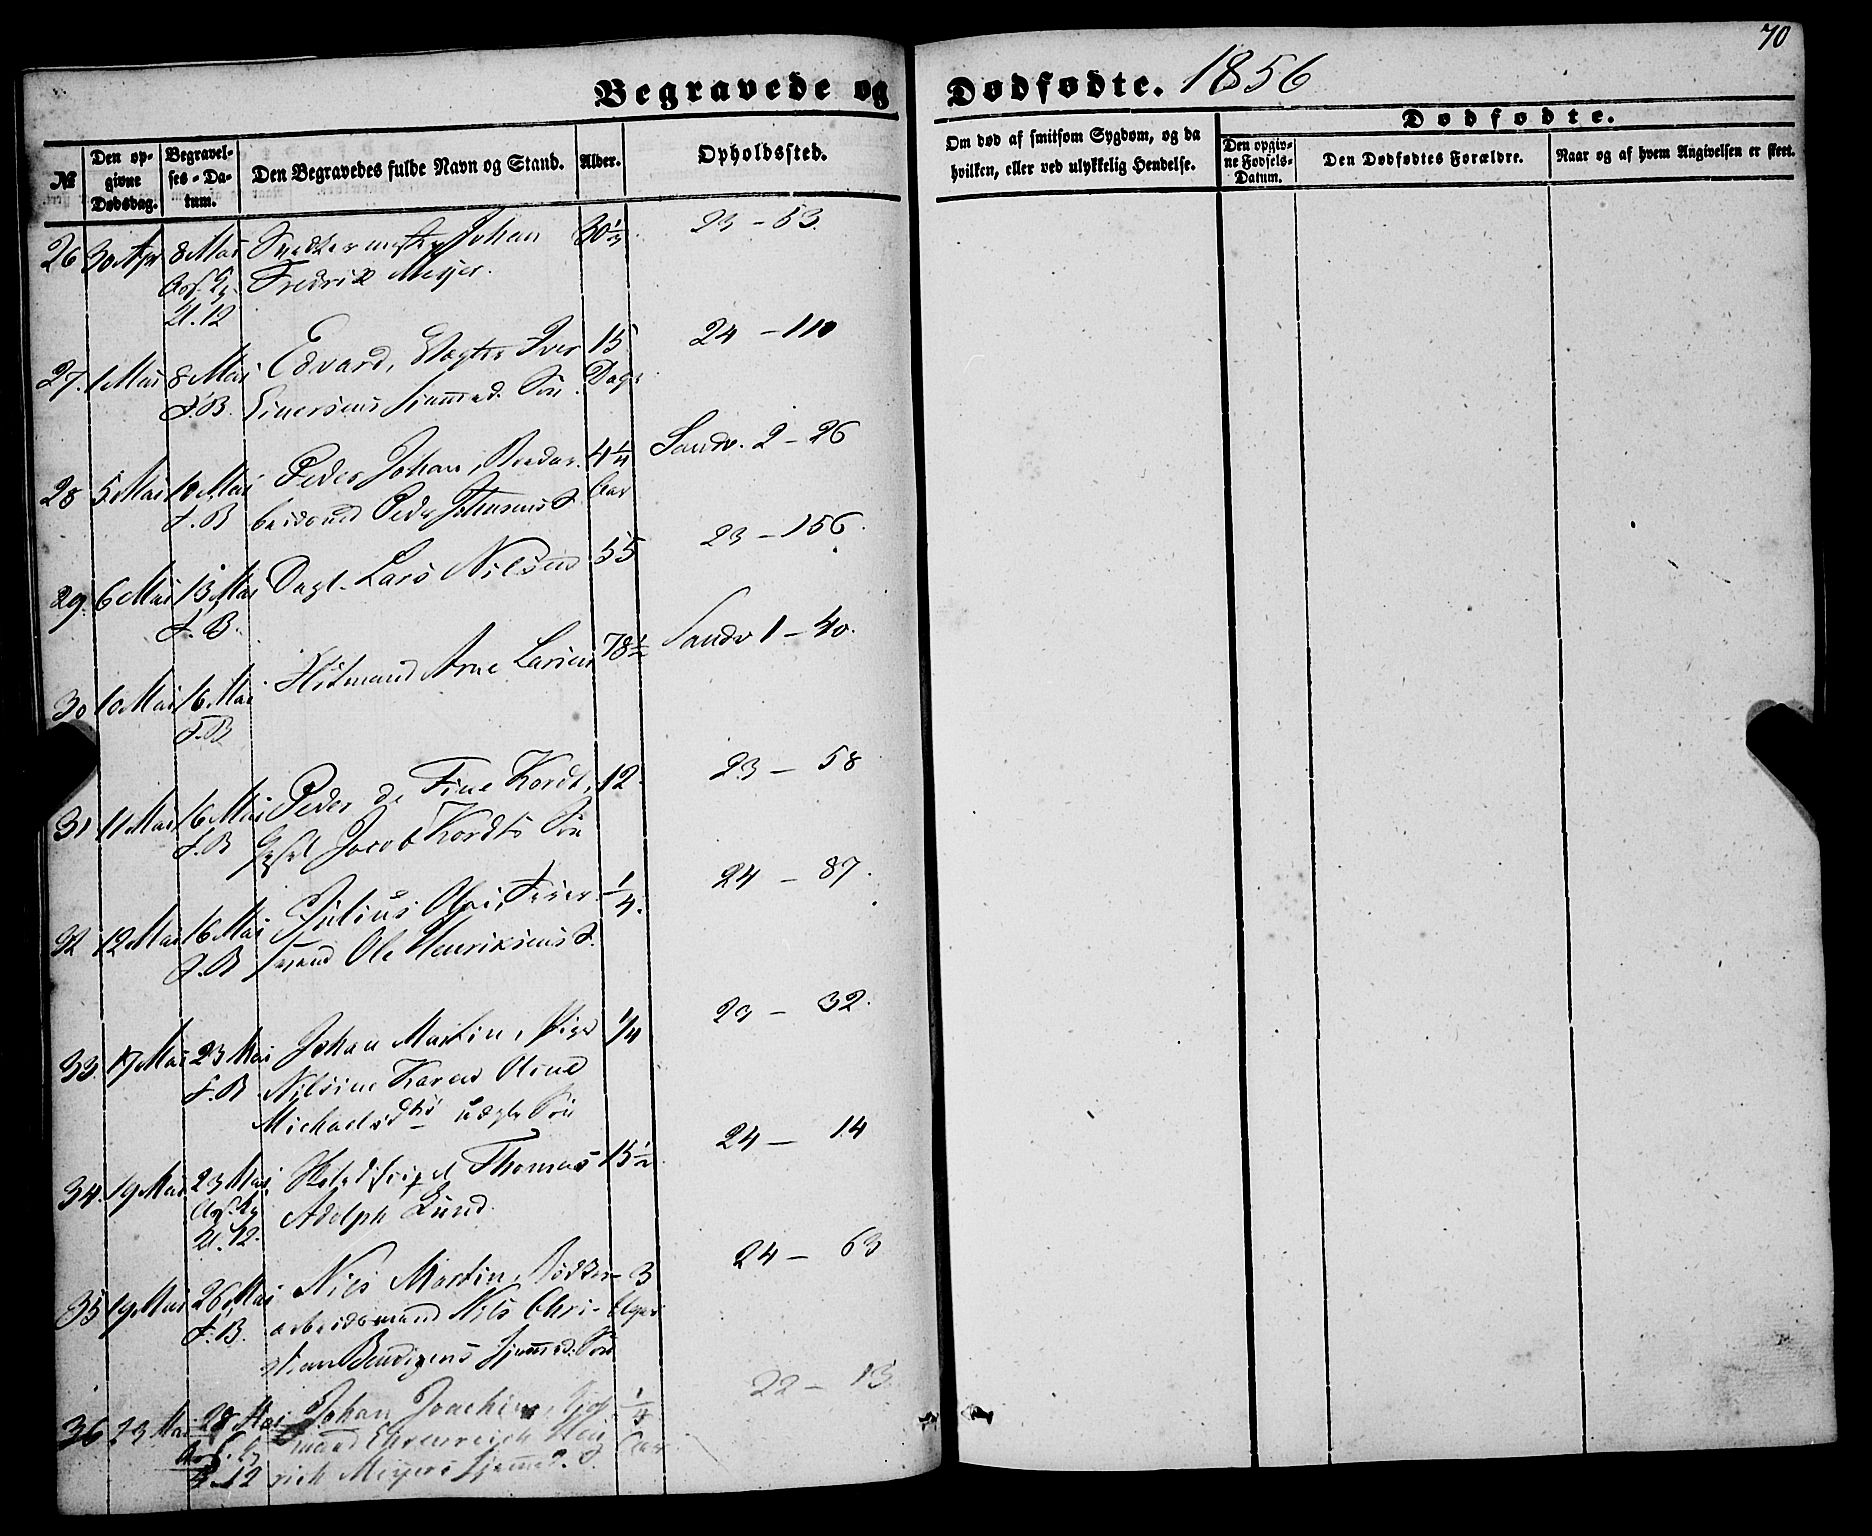 70
Begravede og Dødfødte. 1856
№
Den opgivne Dødsdag.
Begravelses-Datum.
Den Begravedes fulde Navn og Stand.
Alder.
Opholdssted.
Om død af smitsom Sygdom, og da
hvilken, eller ved ulykkelig Hendelse.
Dødfødte.
Den opgivne Fødsels-Datum.
Den Dødfødtes Forældre.
Naar og af hvem Angivelsen er skeet.
26 30 Apr 8 Mai Johan 30 1/3 23 - 53
Fredrik Meyer.
U. 12
27. 1 Mai 8 Mai Edvard, Iver 15 24 - 110
F.B. Einersens Søn. Dage
28 5 Mai 10 Mai Peder Johan, 4 1/4 Sandv. 2 - 26
F.B Peder Johnsens S. Aar
29. 6 Mai 13 Mai Dagl. Lars Nilsen 55 23 - 156
F.B.
30 10 Mai 16 Mai Arne Larsen 78 1/2 Sandv 1 - 40.
F.B
31 11 Mai 16 Mai Peder de Fine Kordt, 12 23 - 58
F.B Jacob Kordts Søn
32 12 Mai 16 Mai Julius Olai, 1/4. 24 - 87.
F.B mand Ole Henriksens S.
33. 17 Mai 23 Mai Johan Martin, Pige 1/4 23 - 32.
F.B Nilsine Karen Oline
Michaelsdtrs uægte Søn
34. 19 Mai 23 Mai Thomas 15 1/2 24 - 14
U. 12. Adolph Lund.
35 19 Mai 26 Mai Nils Martin, Bødker- 3 24 - 63
F.B. arbeidsmand Nils Chri- Uger
stian Søn
36 23 Mai 28 Mai Johan Joachim, 1/4 22 - 13
mand Ehrenreich Hen Aar
12 rich Meyers S.